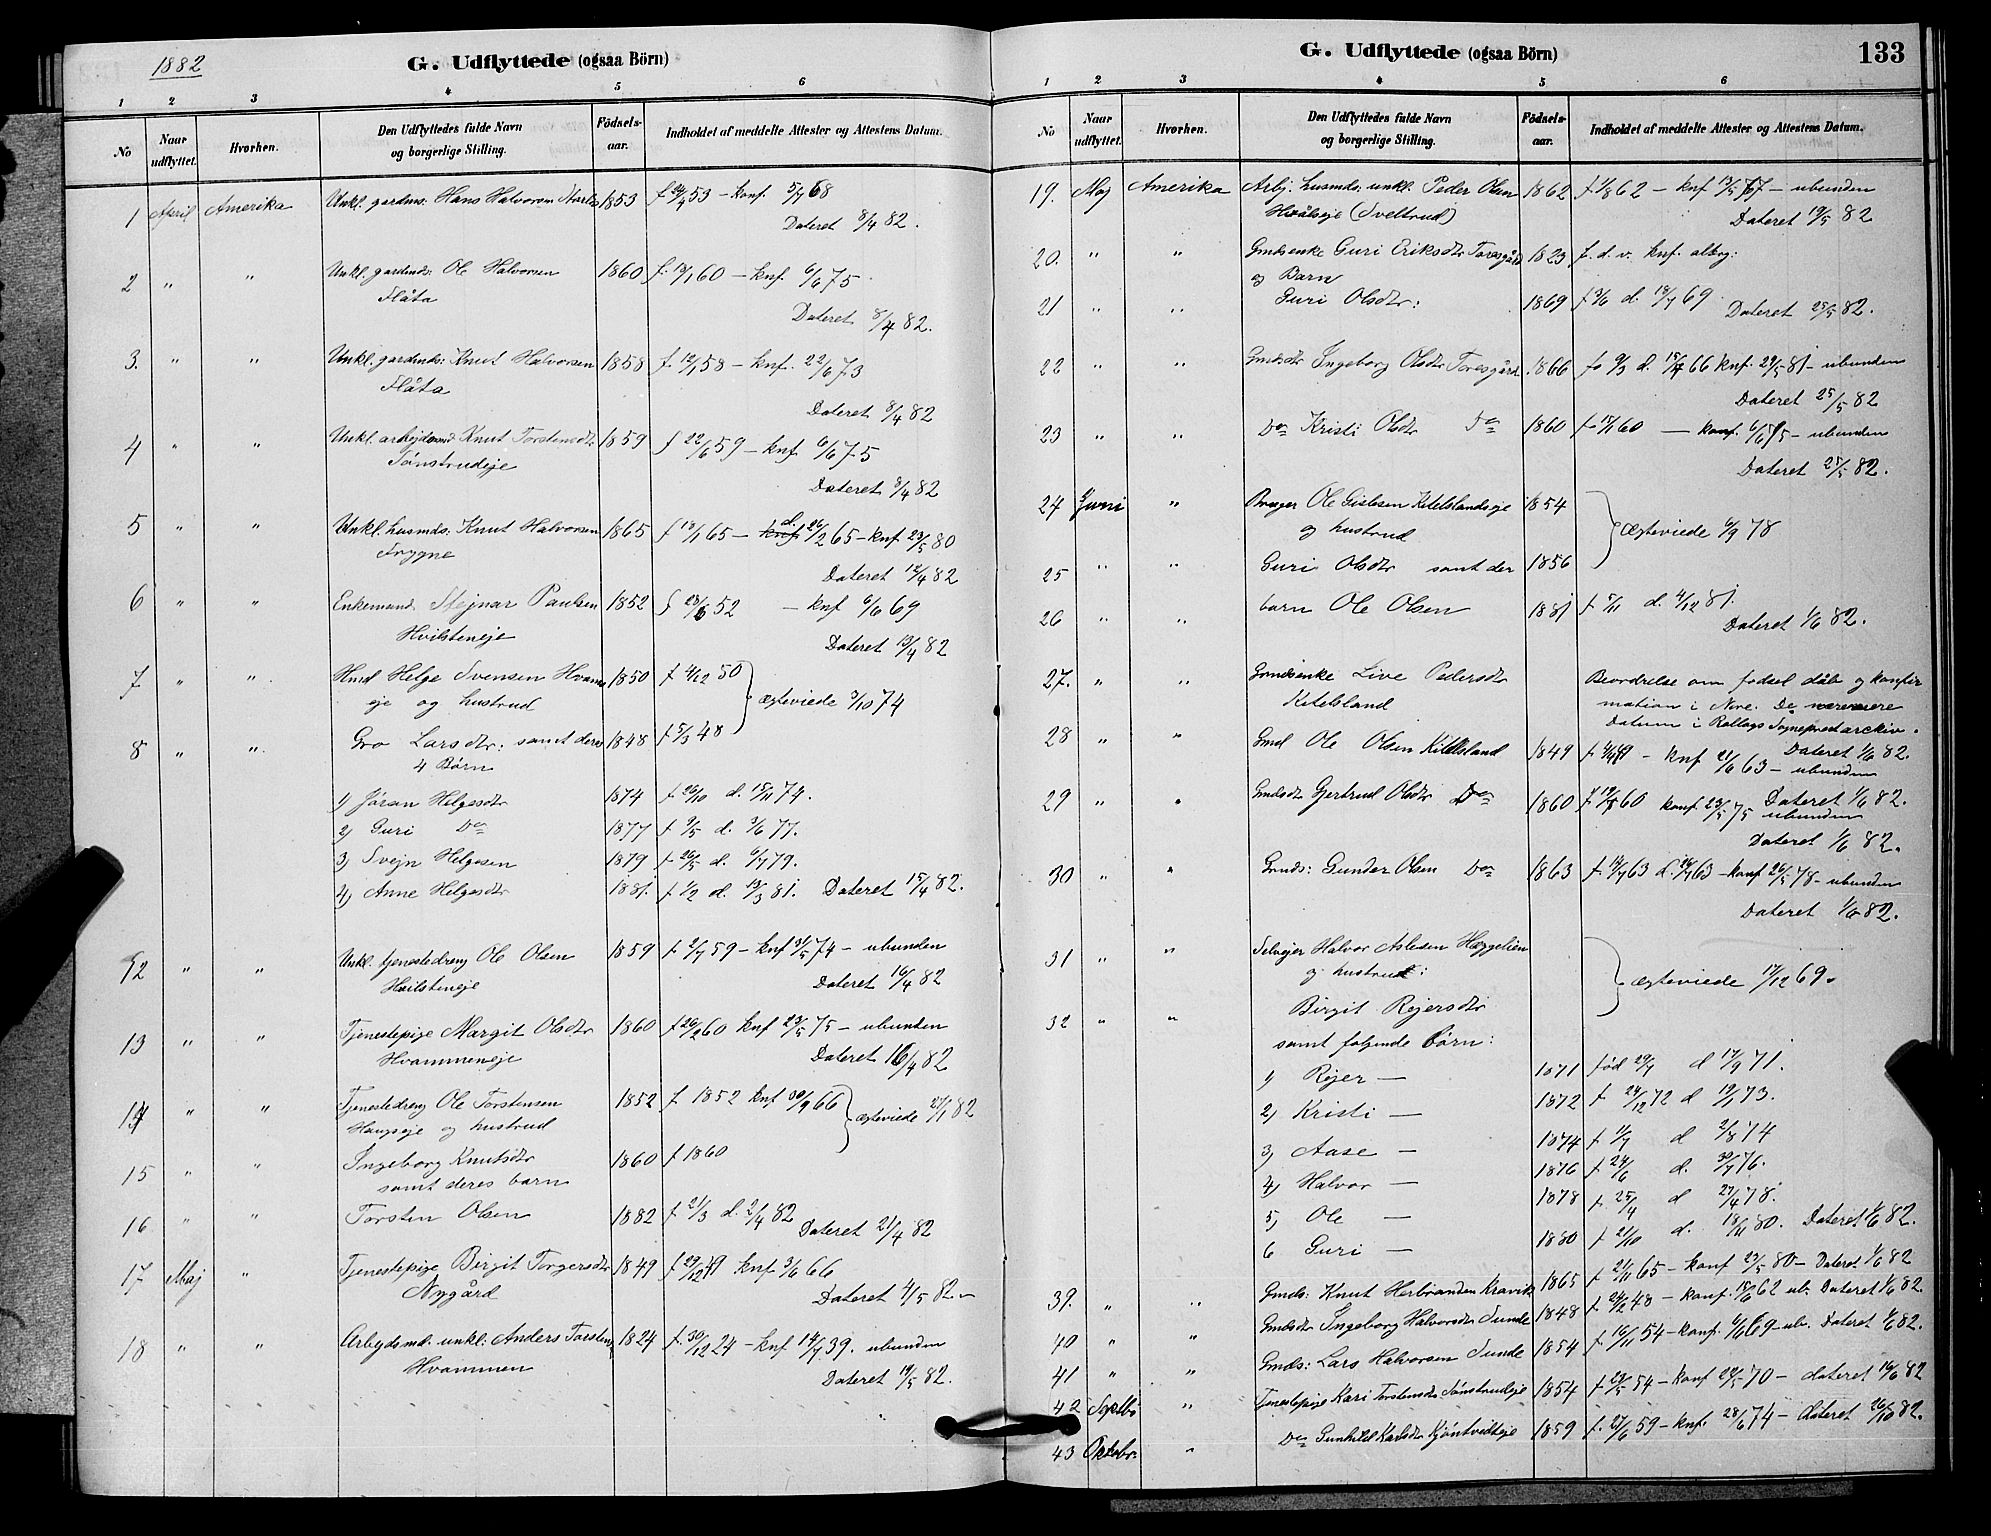 1882
G. Udflyttede (ogsaa Börn)
1 2 3 4 5 6
No
Naar udflyttet.
Hvorhen.
Den Udflyttedes fulde Navn og borgerlige Stilling.
Födsels-aar.
Indholdet af meddelte Attester og Attestens Datum.
1 April Amerika Unkl. gardms: Hans Halvorsen 1853 f. 24/4 53 – konf. 5/7 68
Dateret 8/4 82.
2 " " Unkl. gardmds: Ole Halvorsen 1860 f. 13/1 60 – knf. 6/6 75.
Flåta
Dateret 8/4 82.
3. " " Unkl. gardmds: Knut Halvorsen 1858 f 12/1 58 – knf. 22/6 73
Flåta
Dateret 8/4 82
4 " " Unkl. arbejdsmd Knut Torstensdtr 1859 f 22/6 59 – knf 6/6 75
Tønstrudeje
Dateret 8/4 82
5 " " Unkl. husmds: Knut Halvorsen 1865 f 13/1 65 – d. 26/2 65 – knf 23/5 80
Frygne
Dateret 12/4 82
6 " " Enkemand Stejnar Paulsen 1852 f 23/6 52 – knf 6/6 69
Hvilsteneje
Dateret 13/4 82
7 " " Hmd Helge Svensen Hvamm 1850 f 4/12 50
eje og hustrud ægteviede 3/10 74
8 " " Gro Larsdtr: samt deres 1848 f 5/3 48
4 Børn
1) Jøran Helgesdtr 1874 f 26/10 d. 15/11 74.
2) Guri Do 1877 f 9/5 d. 3/6 77.
3) Svejn Helgesen 1879 f 26/5 d. 6/7 79.
4) Anne Helgesdtr 1881. f 1/2 d. 13/3 81. Dateret 15/4 82.
12 " " Unkl. tjenestedreng Ole Olsen 1859 f 2/7 59 – knf 31/5 74 – ubunden
Hvilsteneje
Dateret 16/4 82
13 " " Tjenestepige Margit Olsdtr 1860 f 26/2 60 knf 23/5 75 – ubunden
Hvammeneje
Dateret 16/4 82
14 " " Tjenestedreng Ole Torstensen 1852 f. 1852 knf 30/9 66
Haugseje og hustrud ægteviede 27/1 82
15 " " Ingeborg Knutsdtr 1860 f 1860
samt deres barn
16 " " Torsten Olsen 1882 f 21/3 d. 2/4 82
Dateret 21/4 82
17 Maj " Tjenestepige Birgit Torgersdtr 1849 f 29/12 49 knf 3/6 66
Nygård
Dateret 4/5 82 –
18 " " Arbejdsmd. unkl: Anders Torstens 1824 f. 30/12 24 – knf 14/7 39. ubunden
Hvammen
Dateret 19/5 82.
G. Udflyttede (ogsaa Börn)
133
1 2 3 4 5 6
No
Naar udflyttet.
Hvorhen.
Den Udflyttedes fulde Navn og borgerlige Stilling.
Födsels-aar.
Indholdet af meddelte Attester og Attestens Datum.
19. Maj Amerika Arbj. husmds: unkl. Peder Olsen 1862 f 1/8 62 – knf 13/5 77 – ubunden
(Sveltrud)
Dateret 19/5 82
20. " " Gmdsenke Guri Eriksdtr Toresgård 1823 f. d. v. knf.
og Barn
21 " " Guri Olsdtr: 1869 f 3/6 d. 18/7 69
Dateret 25/5 82.
22 " " Gmdsdtr Ingeborg Olsdtr Toresgård 1866 f. 9/3 d. 15/4 66 knf. 29/5 81 – ubunden
Dateret 25/5 82
23 " " Do Kristi Olsdtr Do 1860 f 15/1 60 – konf. 6/6 75 – ubunden
Dateret 25/5 82.
24 Juni " Bruger Ole Gislesen Kitelslandseje 1854
og hustrud ægteviede 6/9 78
25 " " Guri Olsdtr samt der 1856
26 " " barn Ole Olsen 1881 f 5/11 d. 4/12 81.
Dateret 1/6 82.
27. " " Gmdsenke Live Pedersdtr Beordrelse om fødsel dåb og konfir
Kitelsland mation i Nore. De nærmere
Datum i Rollags Sognepræstarckiv.
28 " " Gmd Ole Olsen Kitelsland 1849 f 4/4 49 – knf 21/6 63 – ubunden
Dateret 1/6 82.
29 " " Gmdsdtr Gjertrud Olsdtr Do 1860 f 19/5 60 konf. 23/5 75 ubunden
Dateret 1/6 82.
Dateret 1/6 82.
30 " " Gmds: Gunder Olsen Do 1863 f 14/7 63 d. 26/7 63 – konf 26/5 78 – ubunden
Dateret 1/6 82.
31 " " Selvejer Halvor Aslesen Heggelien
og hustrud: ægteviede 17/12 69.
32 " " Birgit Rejersdtr
samt følgende børn:
1) Rejer – 1871 fød 29/7 d 17/9 71.
2) Kristi – 1872 f 24/12 72 d 19/1 73.
3) Aase – 1874 f 11/7 d 2/8 74
4) Halvor – 1876 f 24/6 d. 30/7 76.
5) Ole – 1878 f 25/4 d 27/4 78.
6 Guri – 1880 f 21/10 d. 18/11 80. Dateret 1/6 82.
39. " " Gmds: Knut Herbrandsen Kravik 1865 f 21/11 65 – konf 23/5 80 – Dateret 1/6 82
40 " " Gmdsdtr Ingeborg Halvorsdtr Sunde 1848 f 24/2 48 – konf. 15/6 62 ub. Dateret 1/6 82.
41 " " Gmds: Lars Halvorsen Sunde 1854 f 16/11 54 – konf. 6/6 69 – ub. Dateret 1/6 82.
42 Septbr " Tjenestepige Kari Torstensdtr Tønstrudeje 1854 f 23/5 54 – konf 29/5 70 – dateret 16/6 82
43 Oktobr. " Do Gunhild Karlsdtr Kjøntvedteje 1859 f. 27/6 59 – knf. 28/6 74 – dateret 26/10 82.